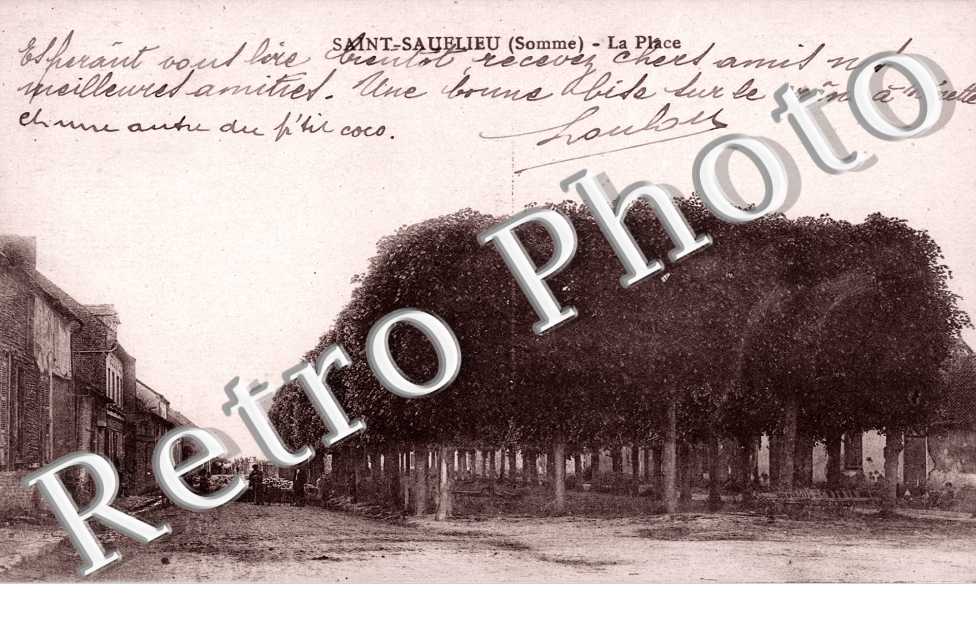 SAINT-SAUFLIEU (Somme) - La Place
Espérant vous lire bientôt recevez chers amis nos
meilleures amitiés. Une bonne bise sur le à
et une autre du p'tit coco.
Loulou
Retro Photo Photo